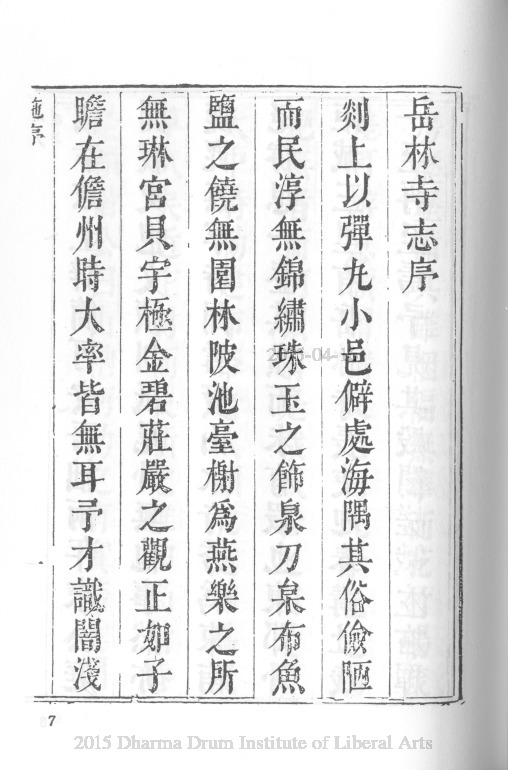 岳林寺志序
剡上以彈丸小邑僻處海隅其俗儉陋
而民淳無錦繡珠玉之飾泉刀枲布魚
鹽之饒無園林陂池臺榭爲燕樂之所
無琳宮貝宇極金碧莊嚴之觀正如子
瞻在儋州時大率皆無耳予才識闇淺
施序
7
2015 Dharma Drum Institute of Liberal Arts